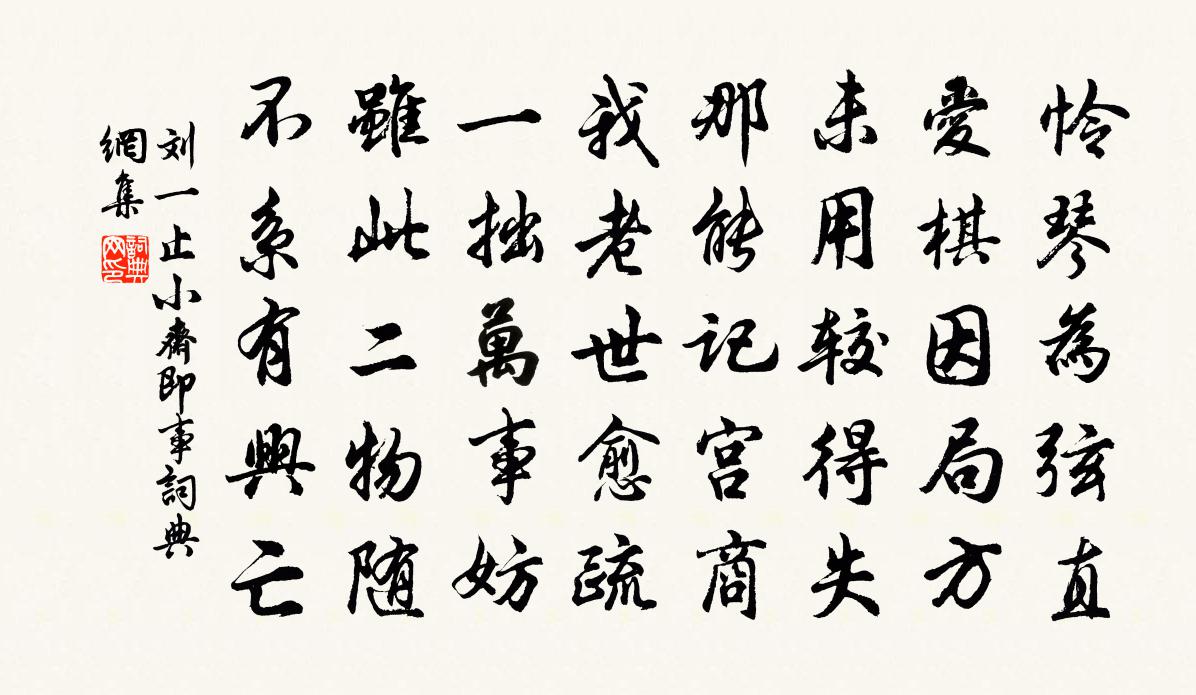 怜琴為弦直
愛棋因局方
未用较得失
那能记宫商
我老世愈疏
一拙萬事妨
雖此二物随
不系有興亡
刘一止小齋即事詞典
網集
詞典
网印